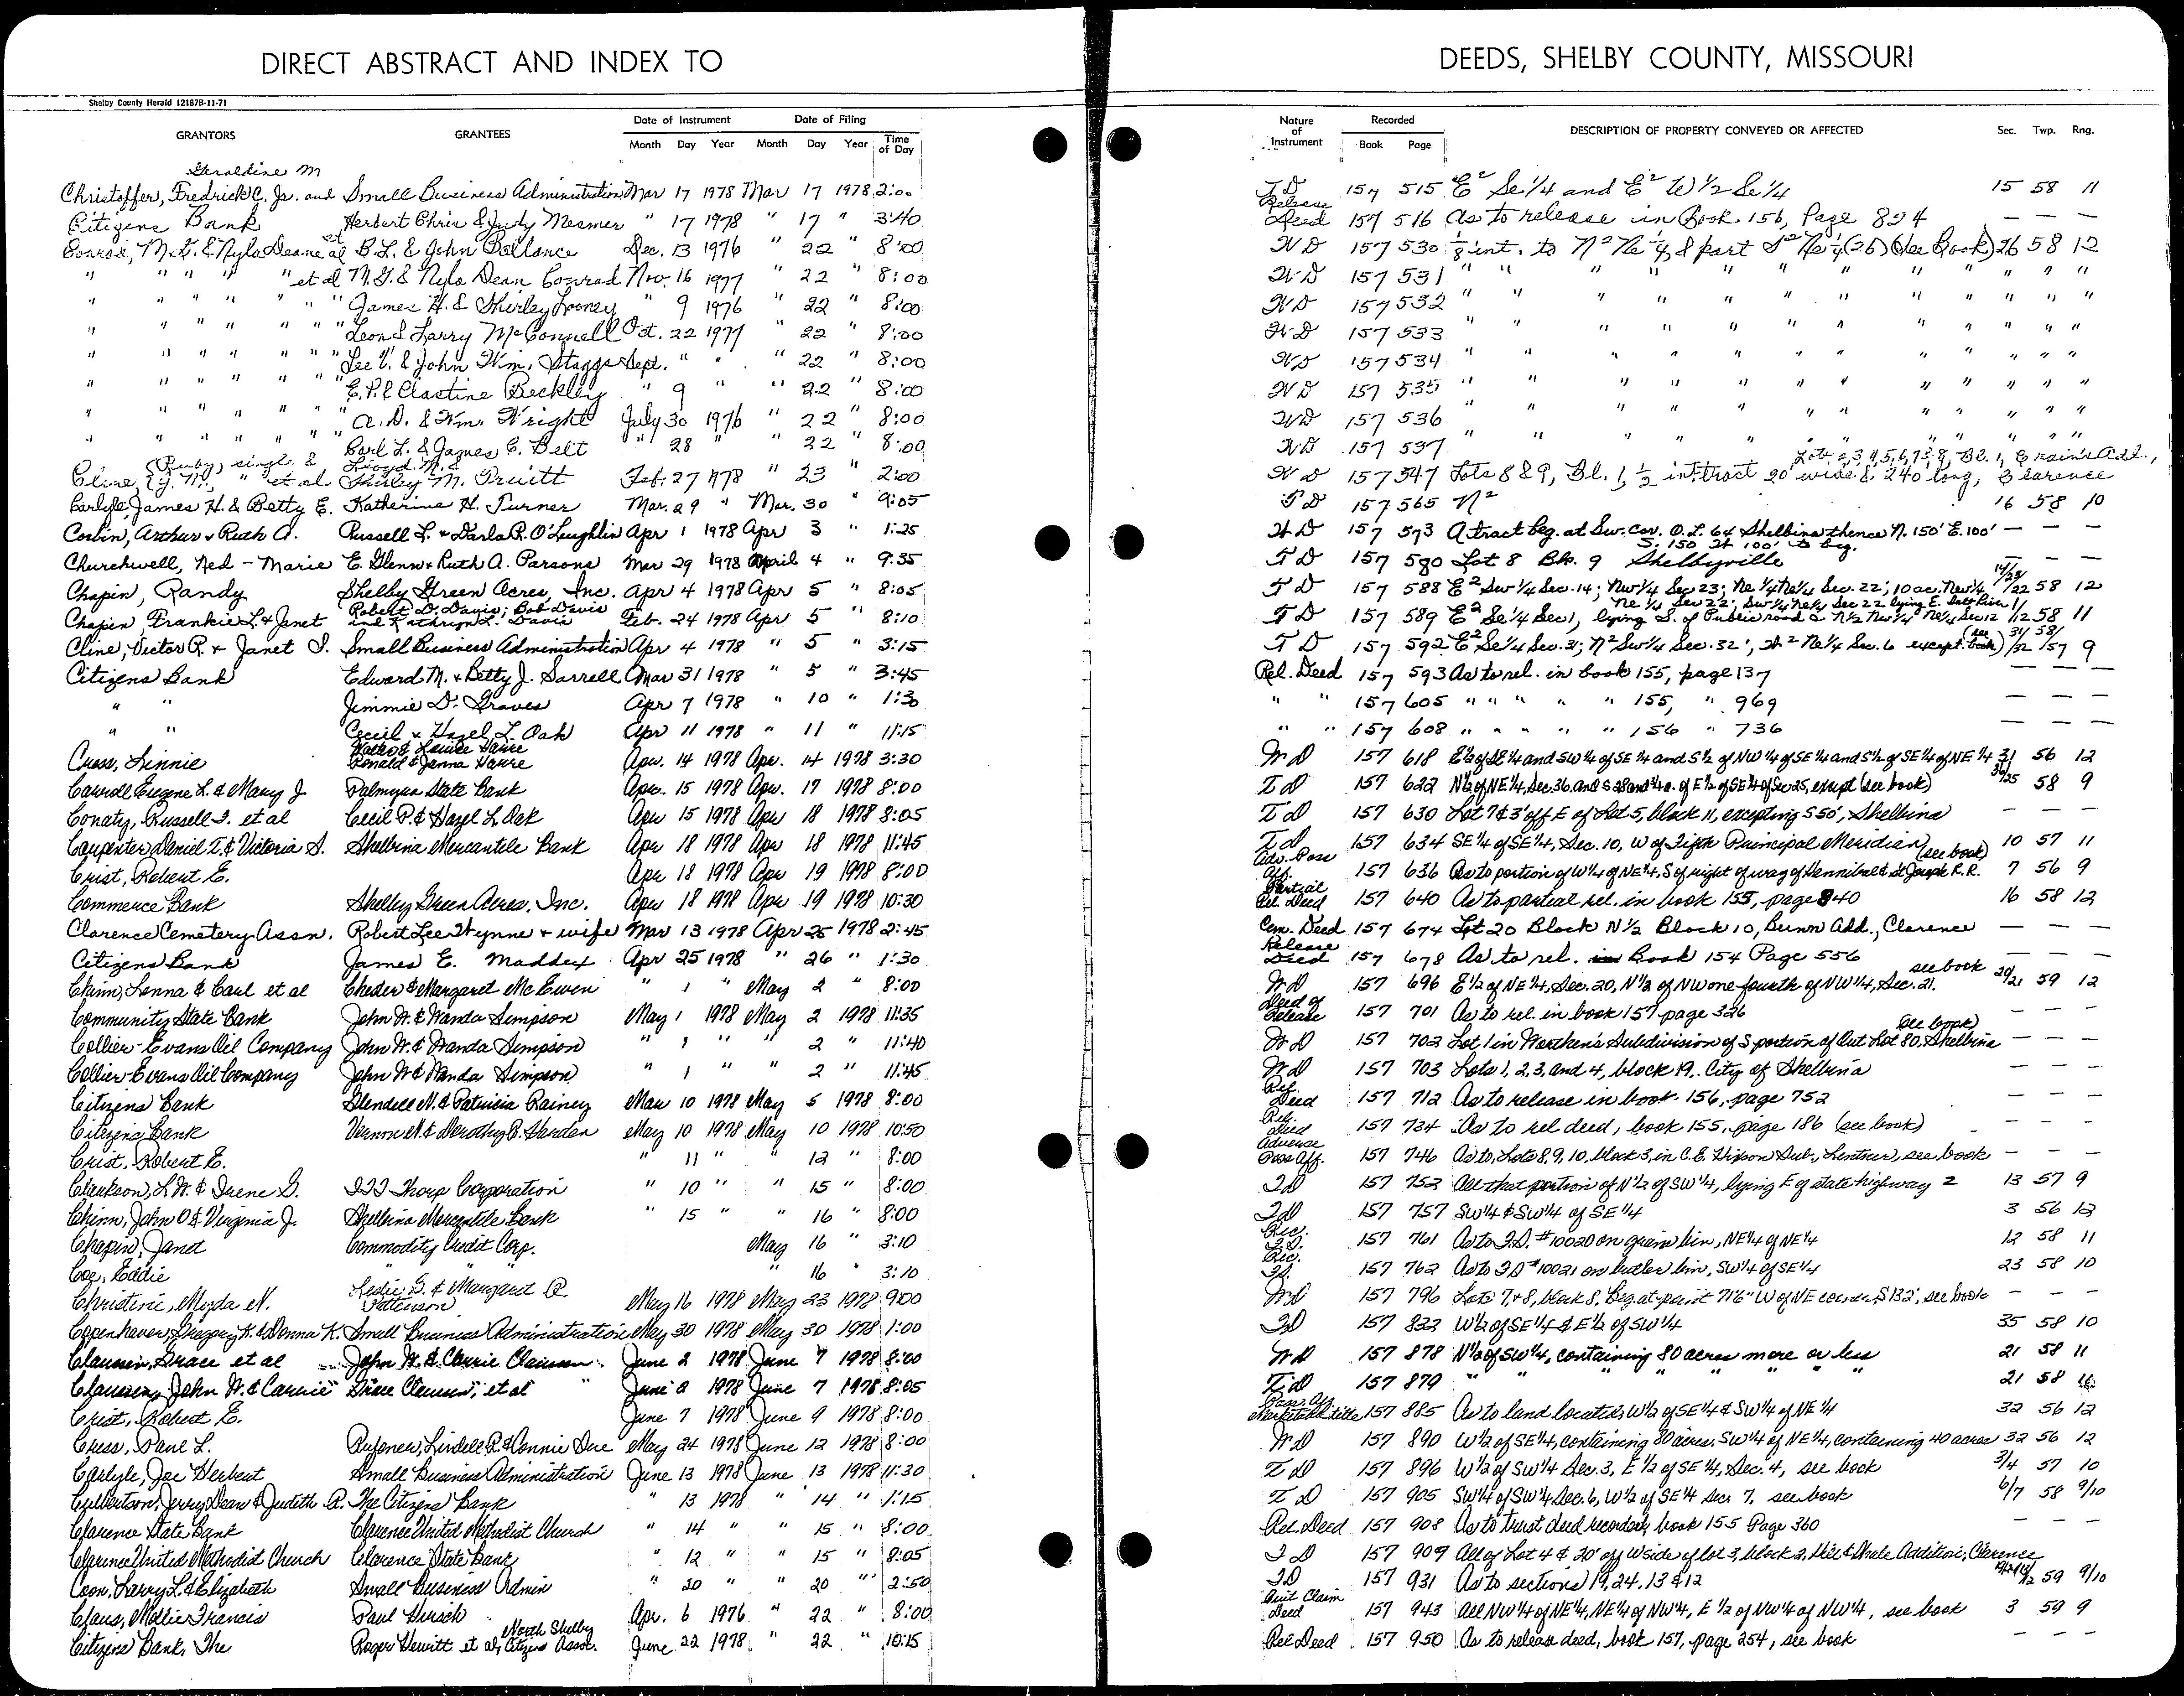 DIRECT ABSTRACT AND INDEX TO DEEDS, SHELBY COUNTY, MISSOURI
Shelby County Herald 12187B-11-71
GRANTORS GRANTEES Date of Instrument Date of Filing Nature of Instrument Recorded DESCRIPTION OF PROPERTY CONVEYED OR AFFECTED Sec. Twp. Rng.
Month Day Year Month Day Year Time of Day Book Page
Geraldine M
Christoffer, Fredrick C. Jr. and Small Business Administration Mar 17 1978 Mar 17 1978 2:00 T D 157 515 E² Se 1/4 and E² W 1/2 Se 1/4 15 58 11
Citizens Bank Herbert Chris & Judy Mesmer " 17 1978 " 17 " 3:40 Release Deed 157 516 As to release in Book 156, Page 824 — — —
Conrad, M. G. & Nyla Deane et al B.L. & John Ballance Dec. 13 1976 " 22 " 8:00 W D 157 530 1/8 int. to N² Ne 1/4 & part S² Ne 1/4 (26) (See Book) 26 58 12
" " " " " et al M. G. & Nyla Dean Conrad Nov. 16 1977 " 22 " 8:00 W D 157 531 " " " " " " " " " "
" " " " " " James H. & Shirley Looney " 9 1976 " 22 " 8:00 W D 157 532 " " " " " " " " " "
" " " " " " Leon & Larry McConnell Oct. 22 1977 " 22 " 8:00 W D 157 533 " " " " " " " " " "
" " " " " " Lee V. & John Wm. Staggs Sept. " " " 22 " 8:00 W D 157 534 " " " " " " " " " "
" " " " " " E.P. & Clastine Beckley " 9 " " 22 " 8:00 W D 157 535 " " " " " " " " " "
" " " " " " A. D. & Wm. Wright July 30 1976 " 22 " 8:00 W D 157 536 " " " " " " " " " "
" " " " " " Carl L. & James C. Belt " 28 " " 22 " 8:00 W D 157 537 " " " " " " " " " "
(Ruby, single & Lloyd M. & Lots 2, 3, 4, 5, 6, 7, & 8, Bl. 1, Add.,
Cline, (J. N., " et al Shirley M. Pruitt Feb. 27 1978 " 23 " 2:00 W D 157 547 Lots 8 & 9, Bl. 1, 1/2 int. tract 20' wide & 240' long, Clarence
Carlyle, James H. & Betty E. Katherine H. Turner Mar. 29 " Mar. 30 " 9:05 T D 157 565 N² 16 58 10
Corbin, Arthur & Ruth A. Russell L. & Darla R. O'Laughlin Apr 1 1978 Apr 3 " 1:25 W D 157 573 A tract beg. at Sw. cor. O.L. 64 Shelbina thence N. 150' E. 100' — — —
S. 150 W 100' to beg.
Churchwell, Ned - Marie E. Glenn & Ruth A. Parsons Mar 29 1978 April 4 " 9:35 T D 157 580 Lot 8 Blk. 9 Shelbyville — — —
Chapin, Randy Shelby Green Acres, Inc. Apr 4 1978 Apr 5 " 8:05 T D 157 588 E² Sw 1/4 Sec. 14; Nw 1/4 Sec 23; Ne 1/4 Ne 1/4 Sec. 22; 10 ac. Nw 1/4 14/23/22 58 12
Robert D. Davis; Bob Davis Ne 1/4 Sec 22; Sw 1/4 Ne 1/4 Sec 22 lying E. Salt River
Chapin, Frankie L. & Janet and Kathryn L. Davis Feb. 24 1978 Apr 5 " 8:10 T D 157 589 E² Se 1/4 Sec 1, lying S. of Public road & N 1/2 Nw 1/4 Ne 1/4 Sec 12 1/12 58 11
Cline, Victor R. & Janet S. Small Business Administration Apr 4 1978 " 5 " 3:15 T D 157 592 E² Se 1/4 Sec. 31; N² Sw 1/4 Sec. 32; W² Ne 1/4 Sec. 6 except. (see book) 31/32 58/57 9
Citizens Bank Edward M. & Betty J. Sarrell Mar 31 1978 " 5 " 3:45 Rel. Deed 157 593 As to rel. in book 155, page 137 — — —
" " Jimmie D. Graves Apr 7 1978 " 10 " 1:30 " " 157 605 " " " " " 155, " 969 — — —
" " Cecil & Hazel L. Oak Apr 11 1978 " 11 " 11:15 " " 157 608 " " " " " 156 " 736 — — —
Walter & Louise Hawre
Cross, Linnie Ronald & Janna Hawre Apr. 14 1978 Apr. 14 1978 3:30 W D 157 618 E 1/2 of SE 1/4 and SW 1/4 of SE 1/4 and S 1/2 of NW 1/4 of SE 1/4 and S 1/2 of SE 1/4 of NE 1/4 31 56 12
Carroll Eugene L. & Mary J Palmyra State Bank Apr. 15 1978 Apr. 17 1978 8:00 T D 157 622 N 1/2 of NE 1/4, Sec. 36 and S 28 and 3/4 a. of E 1/2 of SE 1/4 of Sec 25, except (see book) 36/25 58 9
Conaty, Russell F. et al Cecil P. & Hazel L. Oak Apr 15 1978 Apr 18 1978 8:05 T D 157 630 Lot 7 & 3' off E of Lot 5, block 11, excepting S 50', Shelbina — — —
Carpenter, Daniel T. & Victoria S. Shelbina Mercantile Bank Apr 18 1978 Apr 18 1978 11:45 T D 157 634 SE 1/4 of SE 1/4, Sec. 10, W of Fifth Principal Meridian (see book) 10 57 11
Crist, Robert E. Apr 18 1978 Apr 19 1978 8:00 Adv. Poss Aff. 157 636 As to portion of W 1/4 of NE 1/4, S of right of way of Hannibal & St Joseph R.R. 7 56 9
Commerce Bank Shelby Green Acres, Inc. Apr 18 1978 Apr 19 1978 10:30 Partial Rel. Deed 157 640 As to partial rel. in book 155, page 840 16 58 12
Clarence Cemetery Assn. Robert Lee Wynne & wife Mar 13 1978 Apr 25 1978 2:45 Cem. Deed 157 674 Lot 20 Block N 1/2 Block 10, Bunn Add., Clarence — — —
Citizens Bank James E. Maddex Apr 25 1978 " 26 " 1:30 Release Deed 157 678 As to rel. in Book 154 Page 556 — — —
Chinn, Lenna & Carl et al Chester & Margaret McEwen " 1 " May 2 " 8:00 W D 157 696 E 1/2 of NE 1/4, Sec. 20, N 1/2 of NW one fourth of NW 1/4, Sec. 21. see book 20/21 59 12
Community State Bank John W. & Wanda Simpson May 1 1978 May 2 1978 11:35 Deed of Release 157 701 As to rel. in book 157 page 326 — — —
Collier-Evans Oil Company John W. & Wanda Simpson " 1 " " 2 " 11:40 W D 157 702 Lot 1 in Worthen's Subdivision of S portion of Out Lot 80, Shelbina (see book) — — —
Collier-Evans Oil Company John W & Wanda Simpson " 1 " " 2 " 11:45 W D 157 703 Lots 1, 2, 3, and 4, block 19, City of Shelbina — — —
Citizens Bank Glendell N. & Patricia Rainey Mar 10 1978 May 5 1978 8:00 Rel. Deed 157 712 As to release in book 156, page 752 — — —
Citizens Bank Vernon M. & Dorothy B. Harden May 10 1978 May 10 1978 10:50 Rel. Deed 157 734 As to rel deed, book 155, page 186 (see book) — — —
Crist, Robert E. " 11 " " 12 " 8:00 Adverse Poss Aff. 157 746 As to Lots 8, 9, 10, block 3, in C.E. Hixson Sub., Lentner, see book — — —
Clarkson, L.W. & Irene G. ITT Thorp Corporation " 10 " " 15 " 8:00 T D 157 752 All that portion of N 1/2 of SW 1/4, lying E of state highway 2 13 57 9
Chinn, John O & Virginia J. Shelbina Mercantile Bank " 15 " " 16 " 8:00 T D 157 757 SW 1/4 & SW 1/4 of SE 1/4 3 56 12
Chapin, Janet Commodity Credit Corp. May 16 " 3:10 Rec. T.D. 157 761 As to T.D. #10020 on grain bin, NE 1/4 of NE 1/4 12 58 11
Coe, Eddie " " " " 16 " 3:10 Rec. T.D. 157 762 As to T D #10021 on butler bin, SW 1/4 of SE 1/4 23 58 10
Leslie S. & Margaret R.
Christine, Myda N. Patterson May 16 1978 May 23 1978 9:00 W D 157 796 Lots 7, & 8, block 8, Beg. at point 71'6" W of NE corner S 132', see book — — —
Copenhaver, Gregory K. & Donna K. Small Business Administration May 30 1978 May 30 1978 1:00 T D 157 822 W 1/2 of SE 1/4 & E 1/2 of SW 1/4 35 58 10
Claussen, Grace et al John W. & Carrie Claussen June 2 1978 June 7 1978 8:00 W D 157 878 N 1/2 of SW 1/4, containing 80 acres more or less 21 58 11
Claussen, John W. & Carrie Grace Claussen, et al June 2 1978 June 7 1978 8:05 T D 157 879 " " " " " " 21 58 11
Crist, Robert E. June 7 1978 June 9 1978 8:00 Poss. Aff Marketable title 157 885 As to land located, W 1/2 of SE 1/4 & SW 1/4 of NE 1/4 32 56 12
Cress, Paul L. Lindell R. & Connie Sue May 24 1978 June 12 1978 8:00 W D 157 890 W 1/2 of SE 1/4, containing 80 acres, SW 1/4 of NE 1/4, containing 40 acres 32 56 12
Carlyle, Joe Herbert Small Business Administration June 13 1978 June 13 1978 11:30 T D 157 896 W 1/2 of SW 1/4 Sec. 3, E 1/2 of SE 1/4, Sec. 4, see book 3/4 57 10
Culbertson, Jerry Dean & Judith A. The Citizens Bank " 13 1978 " 14 " 1:15 T D 157 905 SW 1/4 of SW 1/4 Sec. 6, W 1/2 of SE 1/4 Sec. 7, see book 6/7 58 9/10
Clarence State Bank Clarence United Methodist Church " 14 " " 15 " 8:00 Rel. Deed 157 908 As to trust deed recorded book 155 Page 360 — — —
Clarence United Methodist Church Clarence State Bank " 12 " " 15 " 8:05 T D 157 909 All of Lot 4 & 20' off W side of lot 3, block 2, Hill & Shale Addition, Clarence
Coon, Larry L. & Elizabeth Small Business Admin " 20 " " 20 " 2:50 T D 157 931 As to sections 19, 24, 13 & 12 59 9/10
Claus, Mollie Francis Paul Hirsch Apr. 6 1976 " 22 " 8:00 Quit Claim Deed 157 943 All NW 1/4 of NE 1/4, NE 1/4 of NW 1/4, E 1/2 of NW 1/4 of NW 1/4, see book 3 59 9
Citizens Bank, The Roger Hewitt et al, North Shelby Citizens Assoc. June 22 1978 " 22 " 10:15 Rel Deed 157 950 As to release deed, book 157, page 254, see book — — —